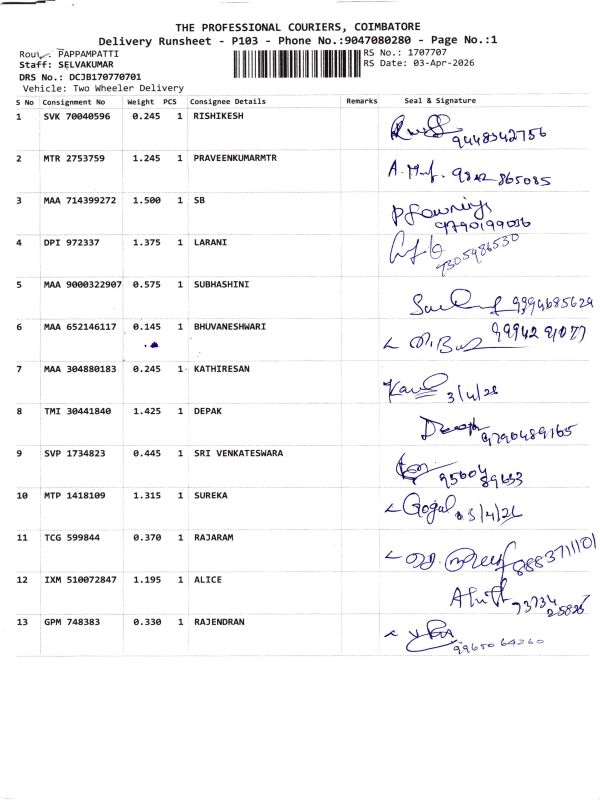 THE PROFESSIONAL COURIERS, COIMBATORE
Delivery Runsheet - P103 - Phone No.:9047080280 - Page No.:1
PAPPAMPATTI
RS No.: 1707707
Staff: SELVAKUMAR
RS Date: 03-Apr-2026
DRS No.: DCJB170770701
Vehicle: Two Wheeler Delivery
S No Consignment No Weight PCS Consignee Details Remarks Seal & Signature
1 SVK 70040596 0.245 1 RISHIKESH 9448342756
2 MTR 2753759 1.245 1 PRAVEENKUMARMTR 9842 865085
3 MAA 714399272 1.500 1 SB
9790199016
4 DPI 972337 1.375 1 LARANI 7305986530
5 MAA 9000322907 0.575 1 SUBHASHINI 9994685629
6 MAA 652146117 0.145 1 BHUVANESHWARI 99942 91077
7 MAA 304880183 0.245 1 KATHIRESAN 3/4/26
8 TMI 30441840 1.425 1 DEPAK 9790489165
9 SVP 1734823 0.445 1 SRI VENKATESWARA 95604
89633
10 MTP 1418109 1.315 1 SUREKA Gogul 3/4/26
11 TCG 599844 0.370 1 RAJARAM 8883711101
12 IXM 510072847 1.195 1 ALICE 73734
25826
13 GPM 748383 0.330 1 RAJENDRAN 9965064260